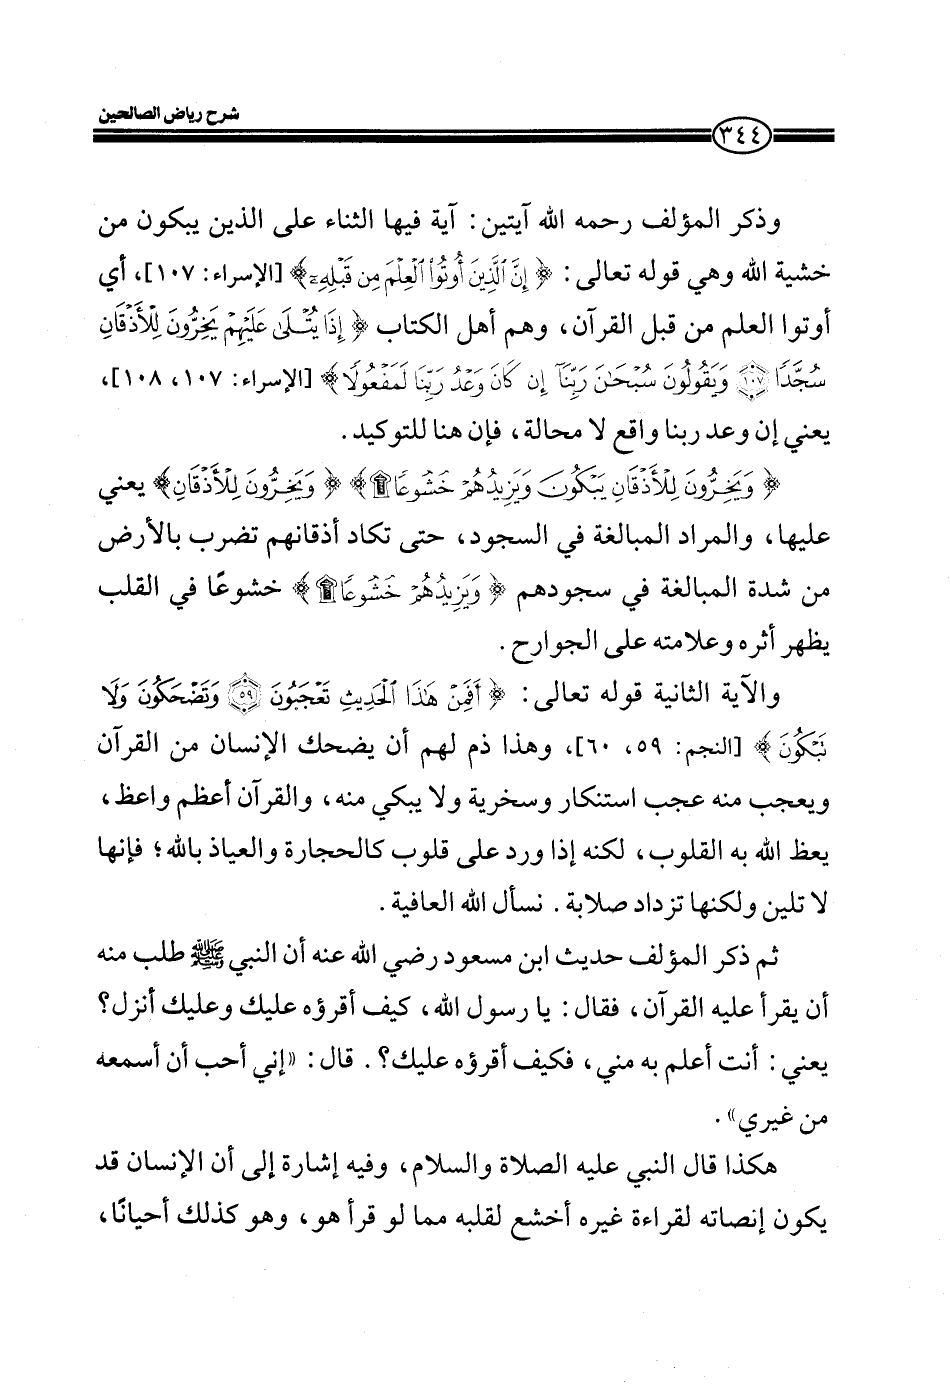 شرح رياض الصالحين
٣٤٤
وذكر المؤلف رحمه الله آيتين: آية فيها الثناء على الذين يبكون من
خشية الله وهي قوله تعالى: ﴿ إِنَّ ٱلَّذِينَ أُوتُوا۟ ٱلْعِلْمَ مِن قَبْلِهِۦٓ ﴾ [الإسراء: ١٠٧]، أي
أوتوا العلم من قبل القرآن، وهم أهل الكتاب ﴿ إِذَا يُتْلَىٰ عَلَيْهِمْ يَخِرُّونَ لِلْأَذْقَانِ
سُجَّدًا ١٠٧ وَيَقُولُونَ سُبْحَٰنَ رَبِّنَآ إِن كَانَ وَعْدُ رَبِّنَا لَمَفْعُولًا ﴾ [الإسراء: ١٠٧، ١٠٨]،
يعني إن وعد ربنا واقع لا محالة، فإن هنا للتوكيد.
﴿ وَيَخِرُّونَ لِلْأَذْقَانِ يَبْكُونَ وَيَزِيدُهُمْ خُشُوعًا ۩ ﴾ ﴿ وَيَخِرُّونَ لِلْأَذْقَانِ ﴾ يعني
عليها، والمراد المبالغة في السجود، حتى تكاد أذقانهم تضرب بالأرض
من شدة المبالغة في سجودهم ﴿ وَيَزِيدُهُمْ خُشُوعًا ۩ ﴾ خشوعًا في القلب
يظهر أثره وعلامته على الجوارح.
والآية الثانية قوله تعالى: ﴿ أَفَمِنْ هَٰذَا ٱلْحَدِيثِ تَعْجَبُونَ ٥٩ وَتَضْحَكُونَ وَلَا
تَبْكُونَ ﴾ [النجم: ٥٩، ٦٠]، وهذا ذم لهم أن يضحك الإنسان من القرآن
ويعجب منه عجب استنكار وسخرية ولا يبكي منه، والقرآن أعظم واعظ،
يعظ الله به القلوب، لكنه إذا ورد على قلوب كالحجارة والعياذ بالله؛ فإنها
لا تلين ولكنها تزداد صلابة. نسأل الله العافية.
ثم ذكر المؤلف حديث ابن مسعود رضي الله عنه أن النبي ﷺ طلب منه
أن يقرأ عليه القرآن، فقال: يا رسول الله، كيف أقرؤه عليك وعليك أنزل؟
يعني: أنت أعلم به مني، فكيف أقرؤه عليك؟. قال: «إني أحب أن أسمعه
من غيري».
هكذا قال النبي عليه الصلاة والسلام، وفيه إشارة إلى أن الإنسان قد
يكون إنصاته لقراءة غيره أخشع لقلبه مما لو قرأ هو، وهو كذلك أحيانًا،